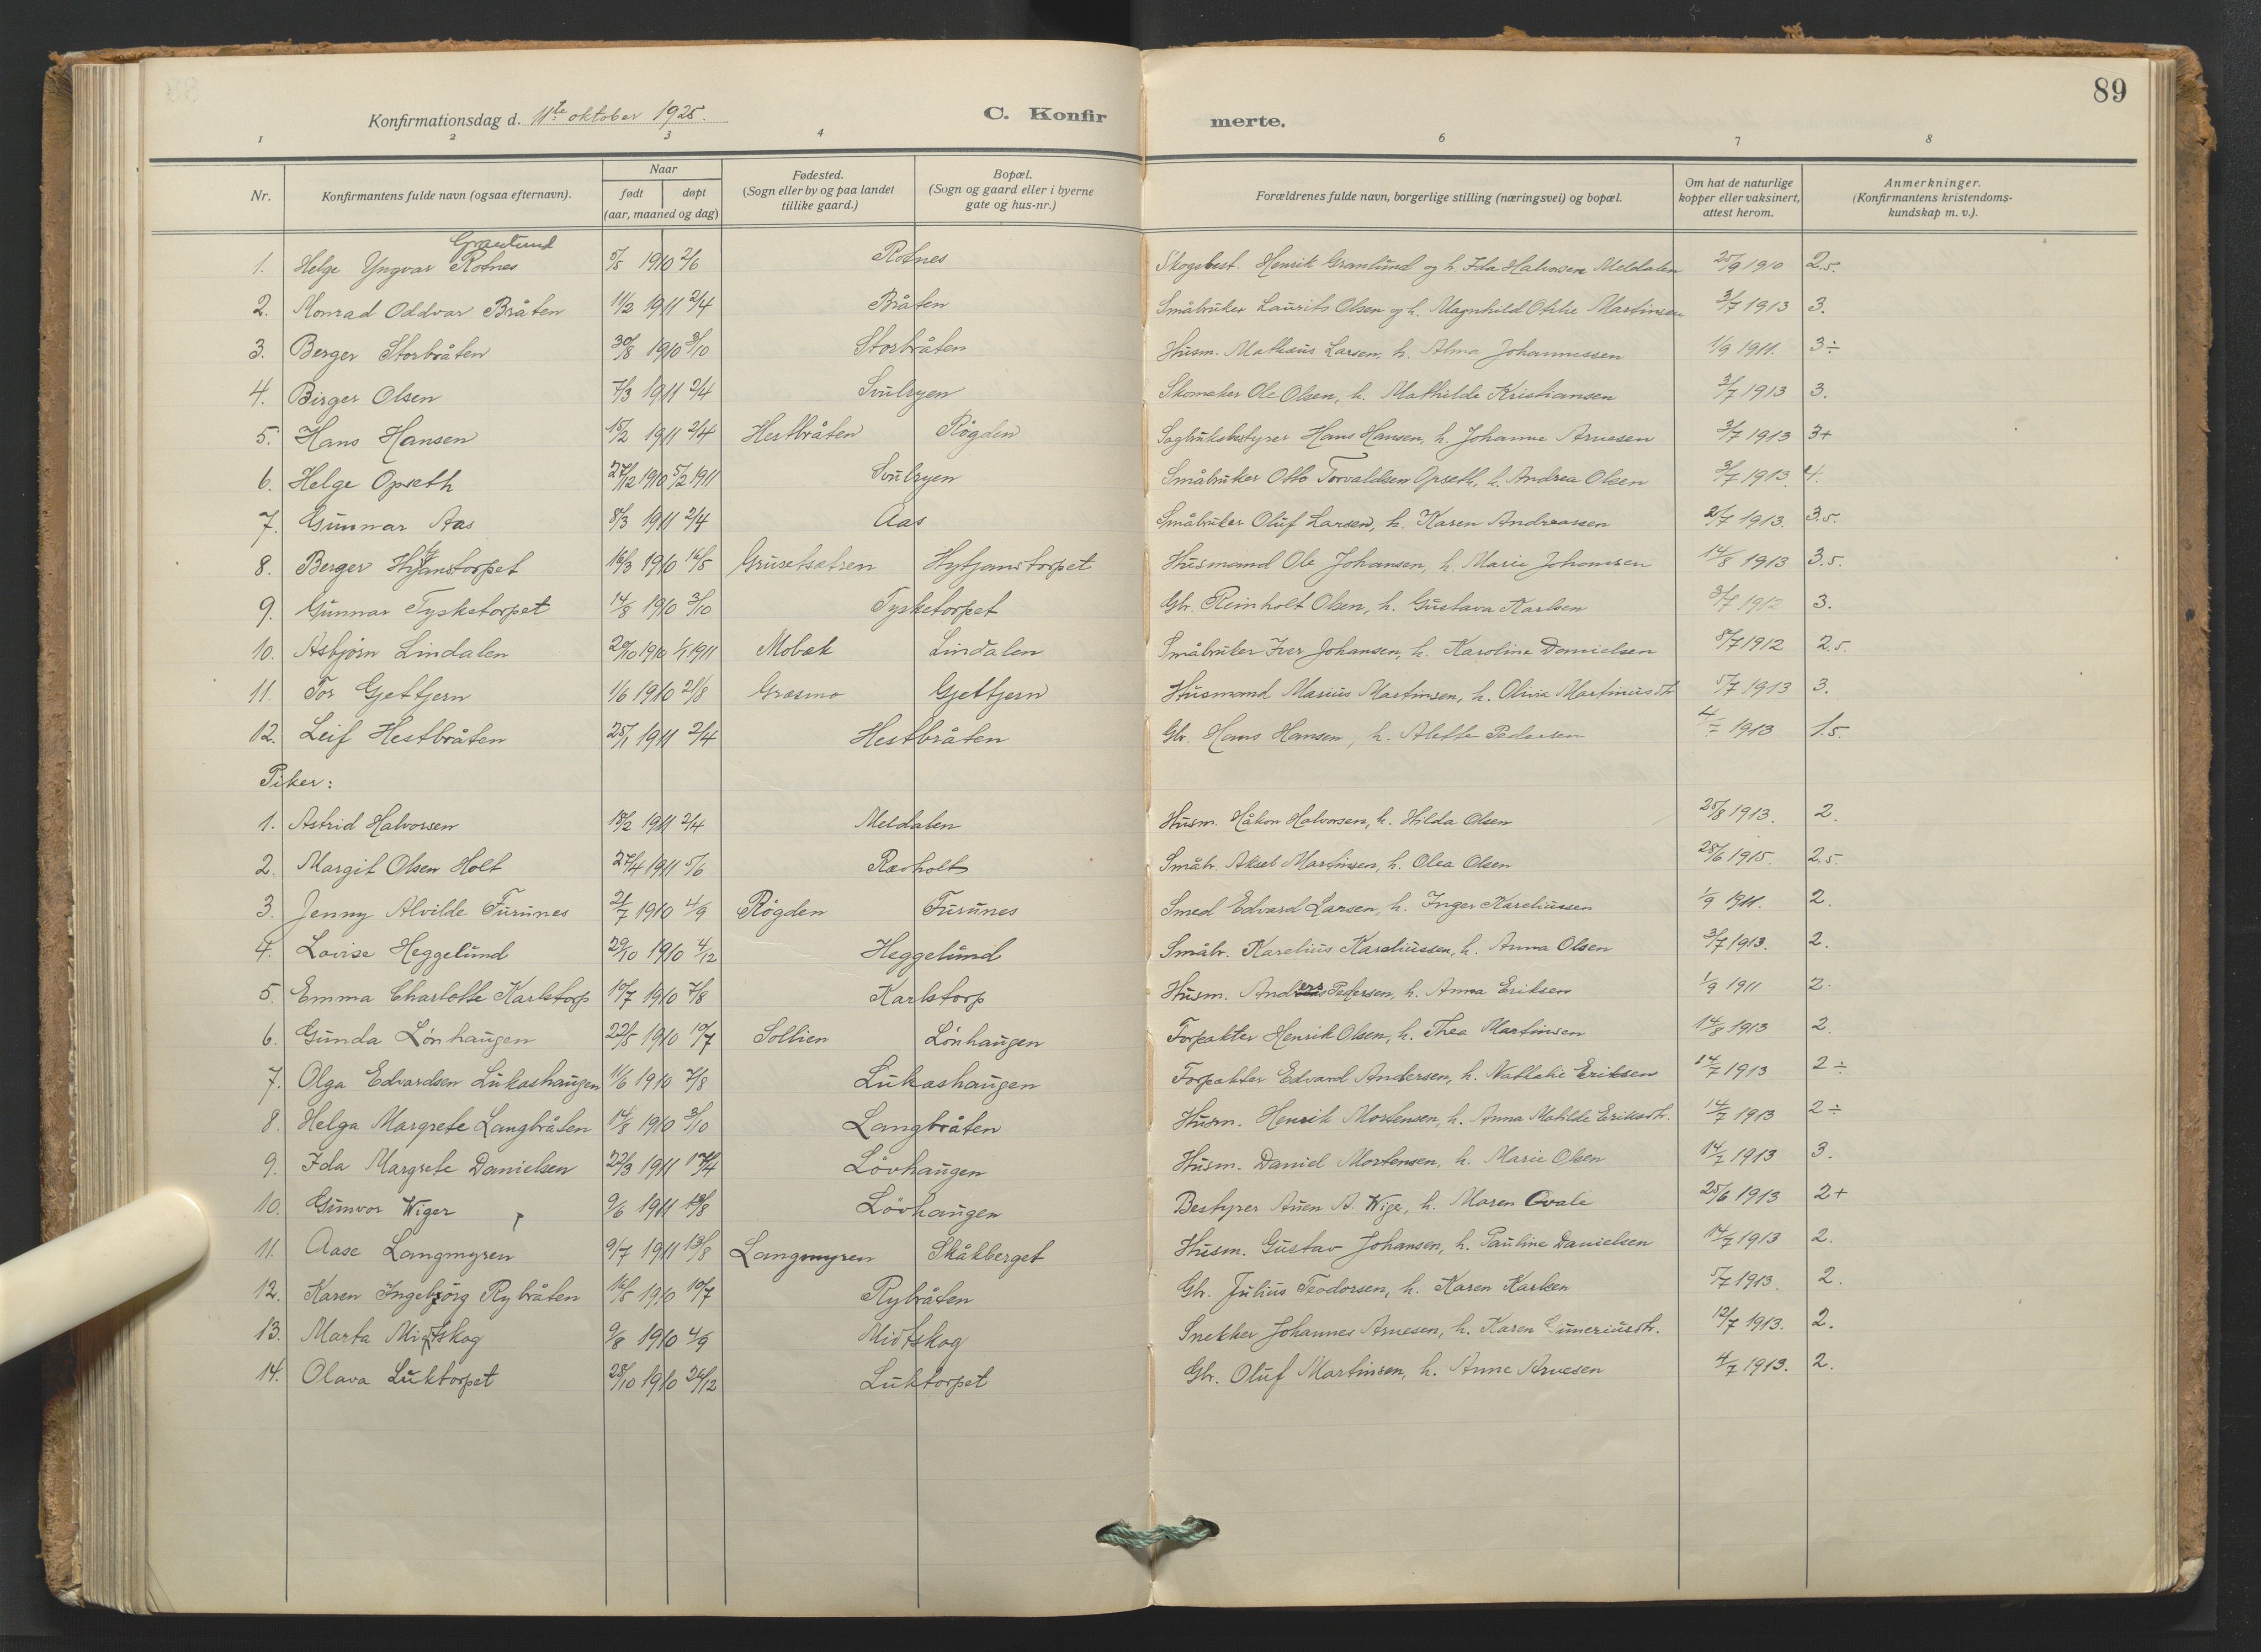 89
Konfirmationsdag d. 11te oktober 1925. C. Konfirmerte.
1 2 3 4 6 7 8
Nr. Konfirmantens fulde navn (ogsaa efternavn). Naar født døpt (aar, maaned og dag) Fødested. (Sogn eller by og paa landet tillike gaard.) Bopæl. (Sogn og gaard eller i byerne gate og hus-nr.) Forældrenes fulde navn, borgerlige stilling (næringsvei) og bopæl. Om hat de naturlige kopper eller vaksinert, attest herom. Anmerkninger. (Konfirmantens kristendomskundskap m. v.).
Granlund
1. Helge Yngvar Rotnes 5/5 1910 2/6 Rotnes Skogsbest. Henrik Granlund og h. Ida Halvorsen Meldalen 25/9 1910 2.5.
2. Konrad Oddvar Bråten 11/2 1911 2/4 Bråten Småbruker Laurits Olsen og h. Magnhild Otilie Martinsen 3/7 1913 3.
3. Berger Storbråten 30/8 1910 3/10 Storbråten Husm. Mathæus Larsen, h. Alma Johannessen 1/9 1911. 3÷
4. Birger Olsen 7/3 1911 2/4 Svulryen Skomaker Ole Olsen, h. Mathilde Kristiansen 3/7 1913 3.
5. Hans Hansen 15/2 1911 2/4 Hestbråten Røgden Sagbruksbestyrer Hans Hansen, h. Johanne Arnesen 3/7 1913 3+
6. Helge Opseth 27/12 1910 5/2 1911 Svulryen Småbruker Otto Torvaldsen Opseth, h. Andrea Olsen 3/7 1913. 4.
7. Gunnar Aas 8/3 1911 2/4 Aas Småbruker Oluf Larsen, h. Karen Andreassen 2/7 1913. 3.5.
8. Berger Hytjanstorpet 16/3 1910 16/5 Grusetsætren Hytjanstorpet Husmand Ole Johansen, h. Marie Johansen 14/8 1913 3.5.
9. Gunnar Tysketorpet 14/8 1910 3/10 Tysketorpet Gbr. Reinholt Olsen, h. Gustava Karlsen 8/7 1912 3.
10. Asbjørn Lindalen 20/10 1910 1/1 1911 Mobæk Lindalen Småbruker Iver Johansen, h. Karoline Danielsen 8/7 1912 2.5.
11. Tor Gjettjern 1/6 1910 21/8 Græsmo Gjettjern Husmand Marius Martinsen, h. Olivia Martinusdtr 5/7 1913 3.
12. Leif Hestbråten 25/1 1911 2/4 Hestbråten Gbr. Hans Hansen, h. Alette Pedersen 4/7 1913 1.5.
Piker:
1. Astrid Halvorsen 18/2 1911 2/4 Meldalen Husm. Håkon Halvorsen, h. Hilda Olsen 25/8 1913. 2.
2. Margit Olsen Holt 27/4 1911 5/6 Rævholt Småbr. Aksel Martinsen, h. Olea Olsen 28/6 1915. 2.5.
3. Jenny Alvilde Furunes 21/7 1910 4/9 Røgden Furunes Smed Edvard Larsen, h. Inger Kareliussen 1/9 1911. 2.
4. Lovise Heggelund 29/10 1910 4/12 Heggelund Småbr. Karelius Kareliussen, h. Anna Olsen 3/7 1913. 2.
5. Emma Charlotte Karlstorp 10/7 1910 7/8 Karlstorp Husm. Anders Pedersen, h. Anna Eriksen 1/9 1911 2.
6. Gunda Lønhaugen 22/5 1910 10/7 Sollien Lønhaugen Forpakter Henrik Olsen, h. Thea Martinsen 14/8 1913 2.
7. Olga Edvardsen Lukashaugen 11/6 1910 7/8 Lukashaugen Forpakter Edvard Andersen, h. Nathalie Eriksen 14/7 1913 2÷
8. Helga Margrete Langbråten 14/8 1910 3/10 Langbråten Husm. Henrik Mortensen, h. Anna Matilde Eriksdtr. 14/7 1913 2÷
9. Ida Margrete Danielsen 22/3 1911 17/4 Løvhaugen Husm. Daniel Mortensen, h. Marie Olsen 14/7 1913 3.
10. Gunvor Wiger 9/6 1911 13/8 Løvhaugen Bestyrer Auen A. Wiger, h. Maren Ovale 25/6 1913 2+
11. Aase Langmyren 9/7 1911 13/8 Langmyren Skåkberget Husm. Gustav Johansen, h. Pauline Danielsen 14/7 1913 2.
12. Karen Ingebjørg Rybråten 16/5 1910 10/7 Rybråten Gbr. Julius Teodorsen, h. Karen Karlsen 5/7 1913. 2.
13. Marta Midtskog 9/8 1910 4/9 Midtskog Snekker Johannes Arnesen, h. Karen Gunneriusdtr. 12/7 1913. 2.
14. Olava Luktorpet 28/10 1910 26/12 Luktorpet Gbr. Oluf Martinsen, h. Anne Arnesen 4/7 1913. 2.